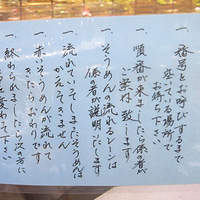 一、番号をお呼びするまで
空いてる場所で
お待ち下
一、順番が来ましたら係の者が
ご案内致します
一、そうめんの流れるレーンは
係の者が説明いたします
一、流れていってしまったそうめんは
かえってきません
一、赤いそうめんが流れてくると
きたらおわりです
一、終わられましたら次の方に
変わって下さい